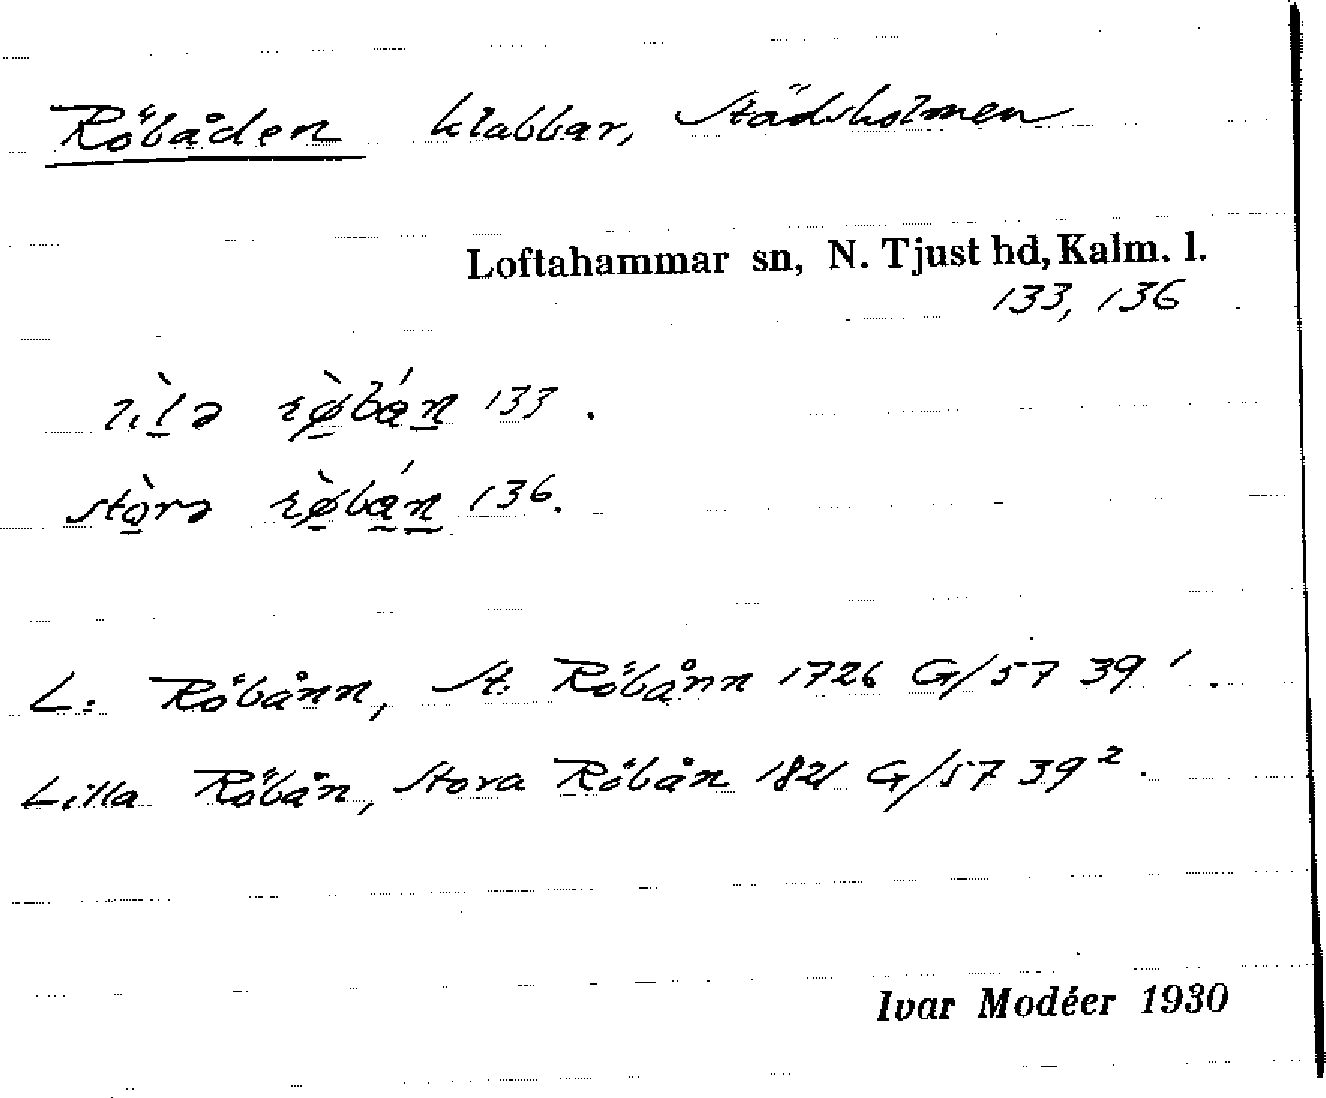 Röbåden klabbar, Städsholmen
Loftahammar sn, N. Tjust hd, Kalm. l.
133, 136
133.
136.
L: Röbånn, St. Röbånn 1726 G/57 39¹.
Lilla Röbån, Stora Röbån 1821 G/57 39².
Ivar Modéer 1930